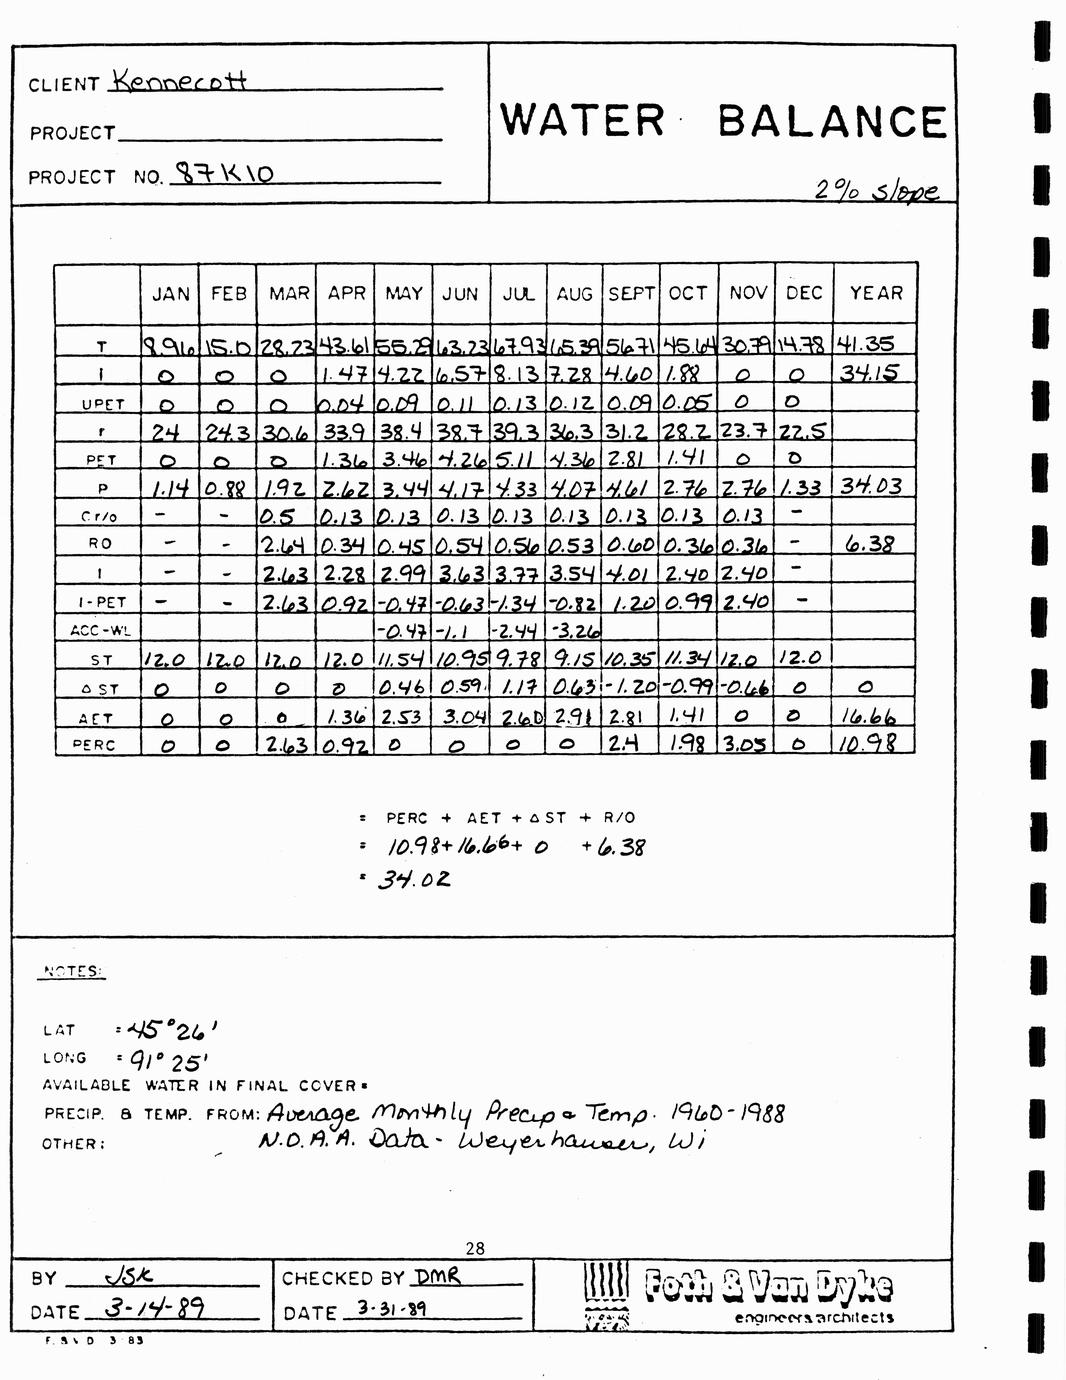 CLIENT Kennecott
PROJECT
PROJECT NO. 87K10
WATER BALANCE
2% slope
JAN FEB MAR APR MAY JUN JUL AUG SEPT OCT NOV DEC YEAR
T 8.96 15.0 28.23 43.61 55.29 63.23 67.93 65.39 56.71 45.64 30.79 14.78 41.35
I 0 0 0 1.47 4.22 6.57 8.13 7.28 4.60 1.88 0 0 34.15
UPET 0 0 0 0.04 0.09 0.11 0.13 0.12 0.09 0.05 0 0
r 24 24.3 30.6 33.9 38.4 38.7 39.3 36.3 31.2 28.2 23.7 22.5
PET 0 0 0 1.36 3.46 4.26 5.11 4.36 2.81 1.41 0 0
P 1.14 0.88 1.92 2.62 3.44 4.17 4.33 4.07 4.61 2.76 2.76 1.33 34.03
Cr/o - - 0.5 0.13 0.13 0.13 0.13 0.13 0.13 0.13 0.13 -
RO - - 2.64 0.34 0.45 0.54 0.56 0.53 0.60 0.36 0.36 - 6.38
I - - 2.63 2.28 2.99 3.63 3.77 3.54 4.01 2.40 2.40 -
I-PET - - 2.63 0.92 -0.47 -0.63 -1.34 -0.82 1.20 0.99 2.40 -
ACC-WL -0.47 -1.1 -2.44 -3.26
ST 12.0 12.0 12.0 12.0 11.54 10.95 9.78 9.15 10.35 11.34 12.0 12.0
Δ ST 0 0 0 0 0.46 0.59 1.17 0.63 -1.20 -0.99 -0.66 0 0
AET 0 0 0 1.36 2.53 3.04 2.60 2.91 2.81 1.41 0 0 16.66
PERC 0 0 2.63 0.92 0 0 0 0 2.4 1.98 3.05 0 10.98
= PERC + AET + Δ ST + R/O
= 10.98 + 16.66 + 0 + 6.38
= 34.02
NOTES:
LAT = 45°26'
LONG = 91° 25'
AVAILABLE WATER IN FINAL COVER =
PRECIP. & TEMP. FROM: Average Monthly Precip & Temp. 1960-1988
OTHER: N.O.A.A. Data - Weyerhauser, Wi
28
BY JSK
DATE 3-14-89
CHECKED BY DMR
DATE 3-31-89
Foth & Van Dyke
engineers/architects
F. & V. D. 3 83